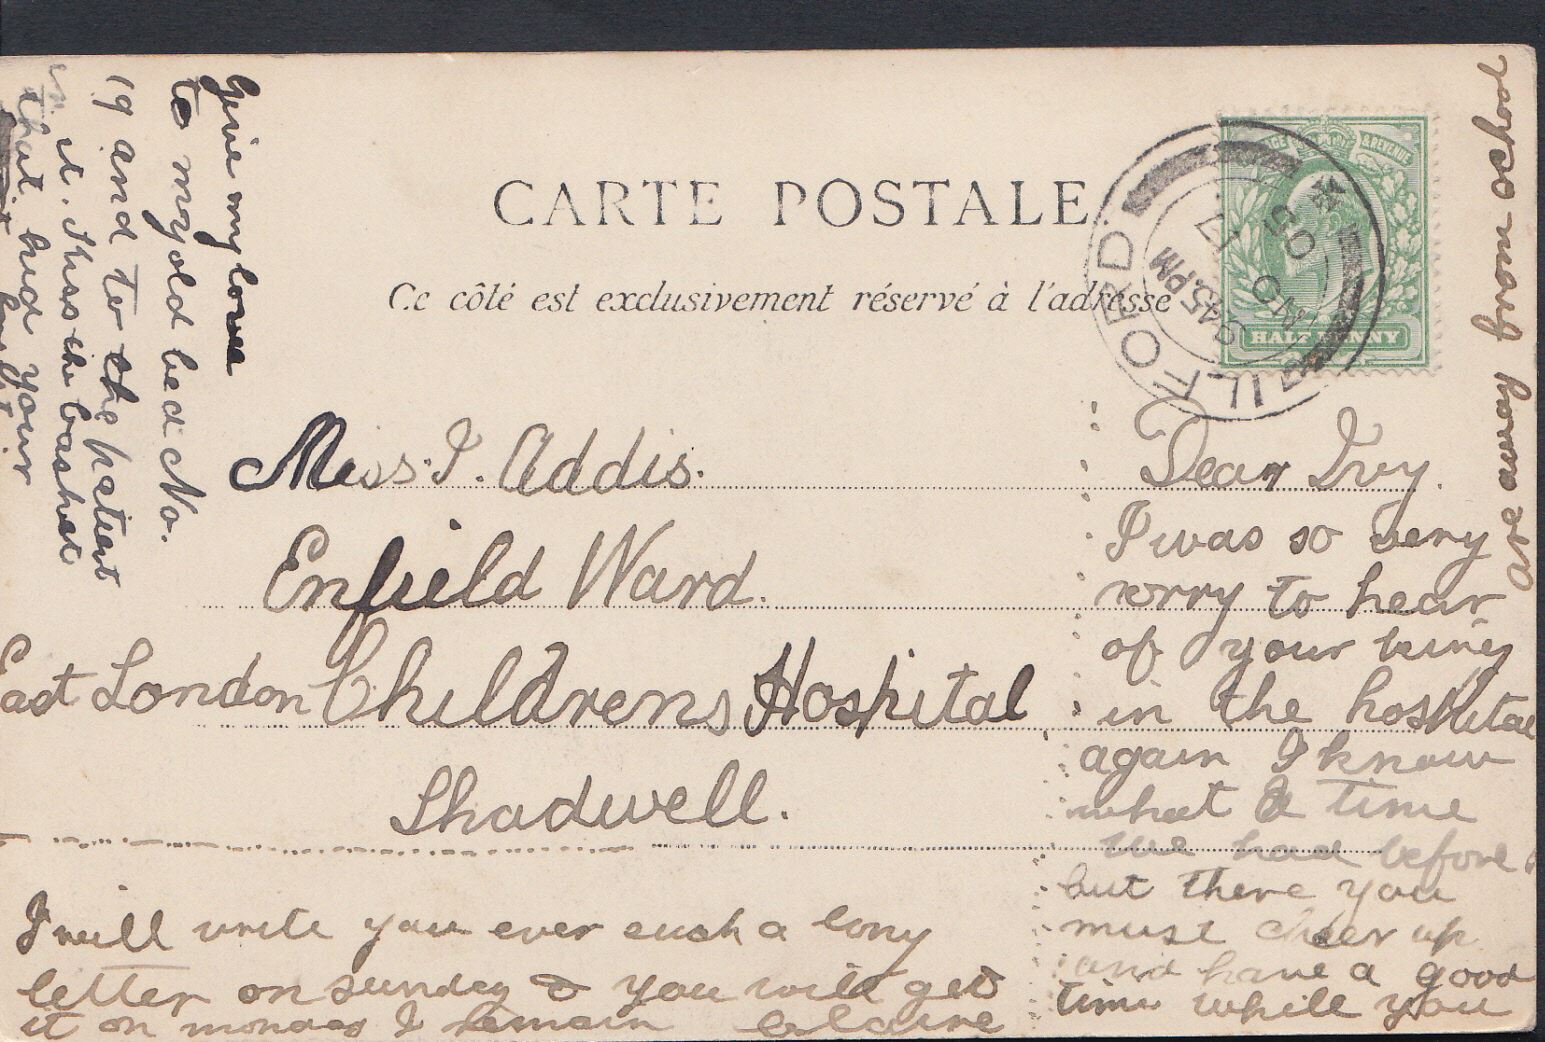 CARTE POSTALE
Ce côté est exclusivement réservé à l'adresse
ILFORD
9.45.PM
NO 17
05
POSTAGE & REVENUE
HALF PENNY
Miss. I. Addis.
Enfield Ward.
East London Childrens Hospital
Shadwell.
Dear Ivy.
I was so very
sorry to hear
of your being
in the hospital
again I know
what a time
we had before
but there you
must cheer up
and have a good
time while you
are away from school
I will write you ever such a long
letter on sunday & you will get
it on monday I remain
Give my love
to my old bed No.
19 and to the patient
in it. Kiss the basket
that hid your